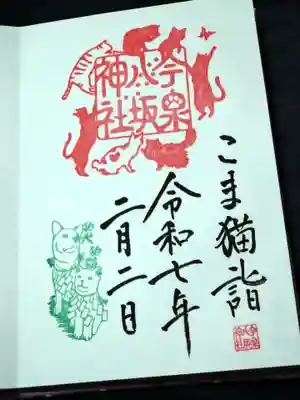 今泉
八坂
神社
こま猫詣
令和七年
二月二日